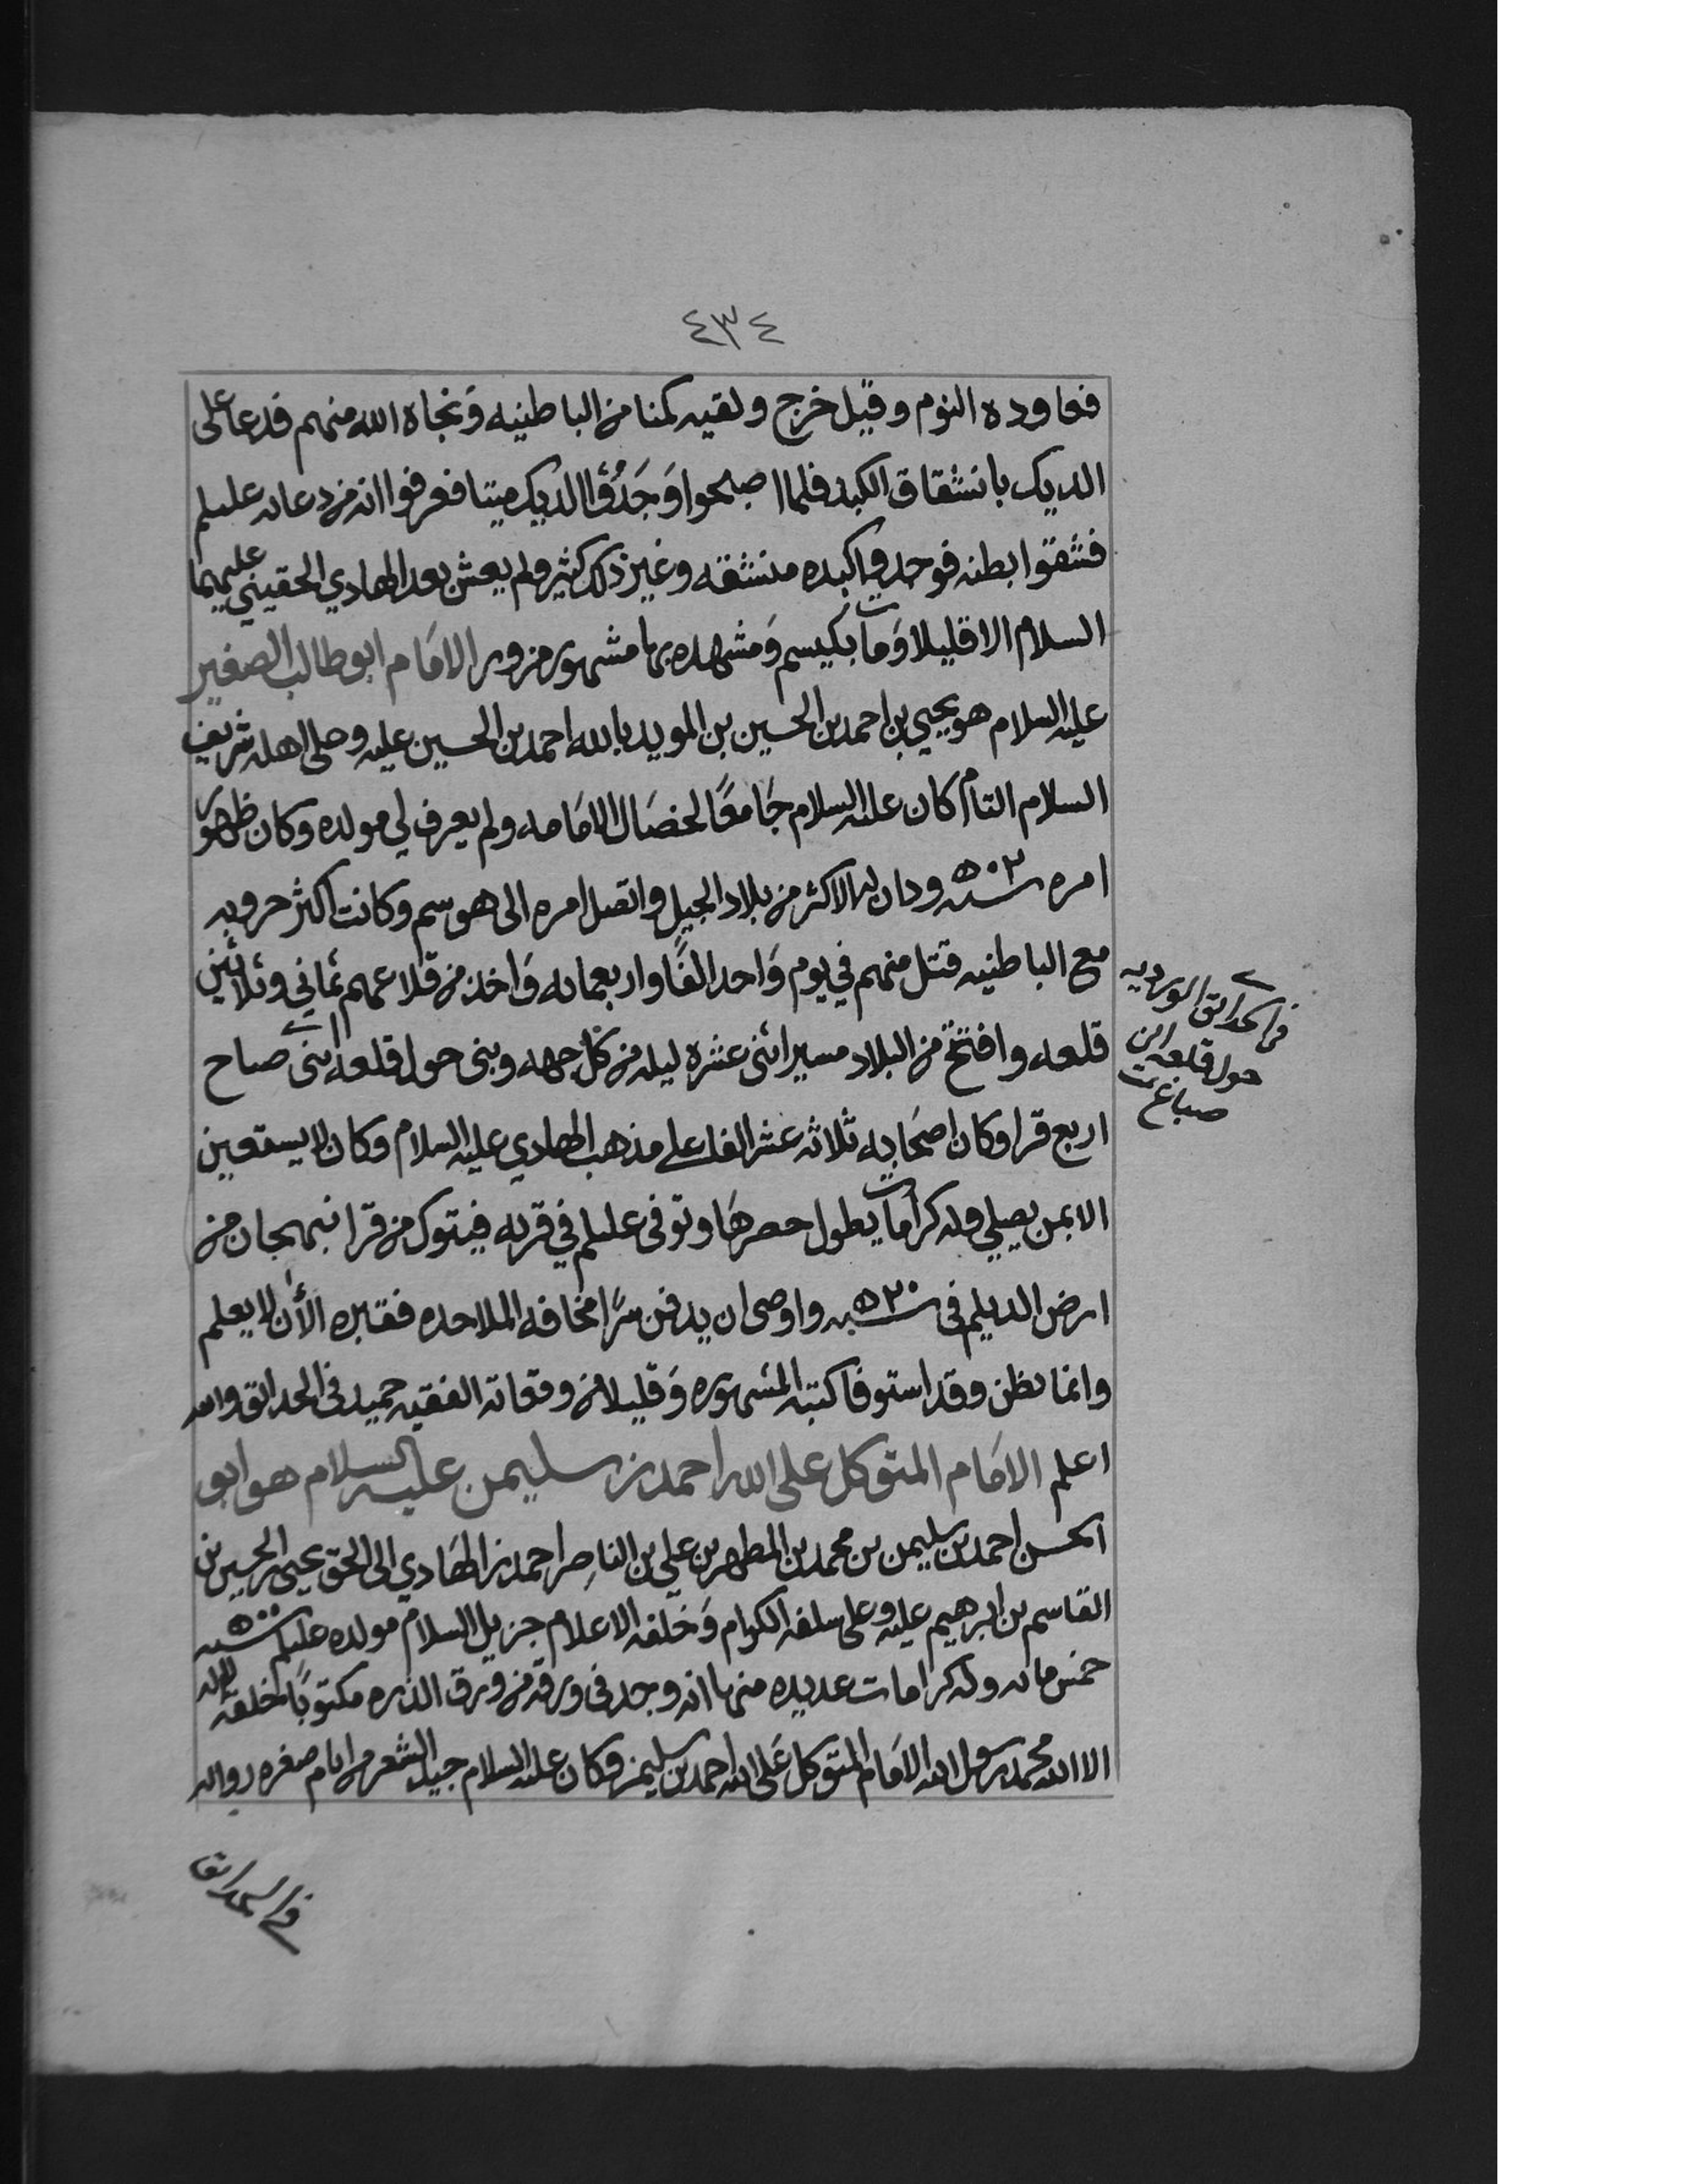 ٤٣٤
فعاوده النوم وقيل خرج ولقيه كمنا من الباطنيه ونجاه الله منهم فدعا على
الديك بانشقاق الكبد فلما اصبحوا وَجَدُوا الديك ميتا فعرفوا انه من دعائه عليلم
فشقوا بطنه فوجدوا كبده منشقه وغير ذلك كثير ولم يعش بعد الهادي الحقيني عليهما
السلام الا قليلا وَمات بكيسم وَمشهده بها مشهور مزور الامَام ابو طالب الصغير
عليه السلام هو يحيى بن احمد بن الحسين بن المويد بالله احمد بن الحسين عليه وعلى اهله شريف
السلام التام كان عليه السلام جَامعًا لخصَال الامَامه ولم يعرف لي مولده وكان ظهور
امره سنه ٥٠٢ ودان له الاكثر من بلاد الجيل واتصل امره الى هوسم وكانت اكثر حروبه
مع الباطنيه قتل منهم في يوم وَاحد الفًا واربعمايه وَاخذ من قلاعهم ثماني وثلاثين
قلعه وافتتح من البلاد مسير اثنى عشره ليله من كل جهه وبنى حول قلعه ابنى صباح
اربع قرا وكان اصحَابه ثلاثه عشر الفا على مذهب الهادي عليه السلام وكان لا يستعين
الا بمن يصلي وله كرامات يطول حصرهَا وتوفى عليلم في قريه فيتوك من قرا تنهجان من
ارض الديلم فى سنه ٥٢٠ واوصى ان يدفن سرًا مخافه الملاحده فقبره الأن لا يعلم
وانما يظن وقد استوفا كتبه المشهوره وَقليلا من وقعاته الفقيه حميد فى الحدائق والله
اعلم الامَام المتوكل على الله احمد بن سليمن عليه السلام هو ابو
الحسن احمد بن سليمن بن محمد بن المطهر بن علي بن الناصِر احمد بن الهَادي الى الحق يحيى بن الحسين بن
القاسم بن ابرهيم عليه وعلى سلفه الكرام وَخلفه الاعلام جزيل السلام مولده عليلم سنه ٥٠٠
خمس مايه وله كرامات عديده منها انه وجد فى ورقه من ورق الذره مكتوبًا خلقه لا اله
الا الله محمد رسول الله الامَام المتوكل عَلى الله احمد بن سليمن وكان عليه السلام جيد الشعر من ايام صغره رواه
في الحدائق الورديه
حول قلعه ابن
صباح
في الحدائق